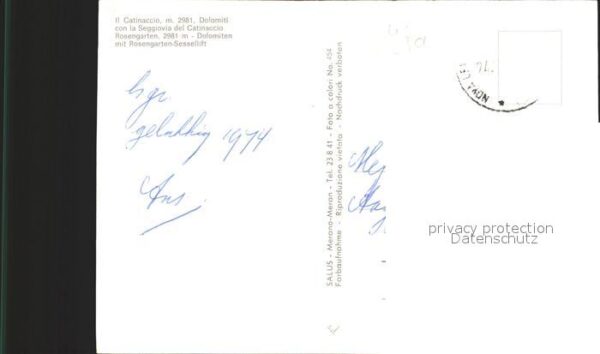 Il Catinaccio, m. 2981, Dolomiti
con la Seggiovia del Catinaccio
Rosengarten, 2981 m - Dolomiten
mit Rosengarten-Sessellift
hgr.
gelukkig 1974
Ans.
SALUS - Merano-Meran - Tel. 23 8 41 - Foto a colori No. 454
Farbaufnahme - Riproduzione vietata - Nachdruck verboten
NOVA LE
privacy protection
Datenschutz